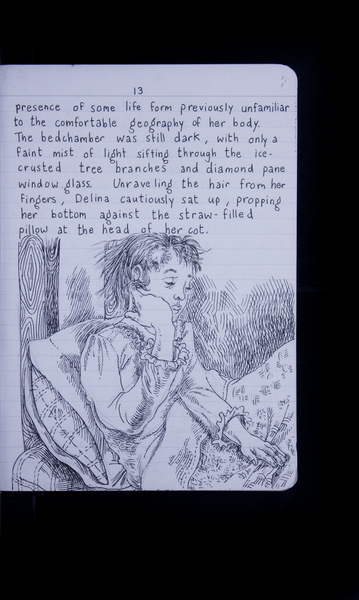 13
presence of some life form previously unfamiliar
to the comfortable geography of her body.
The bedchamber was still dark, with only a
faint mist of light sifting through the ice-
crusted tree branches and diamond pane
window glass. Unraveling the hair from her
fingers, Delina cautiously sat up, propping
her bottom against the straw-filled
pillow at the head of her cot.